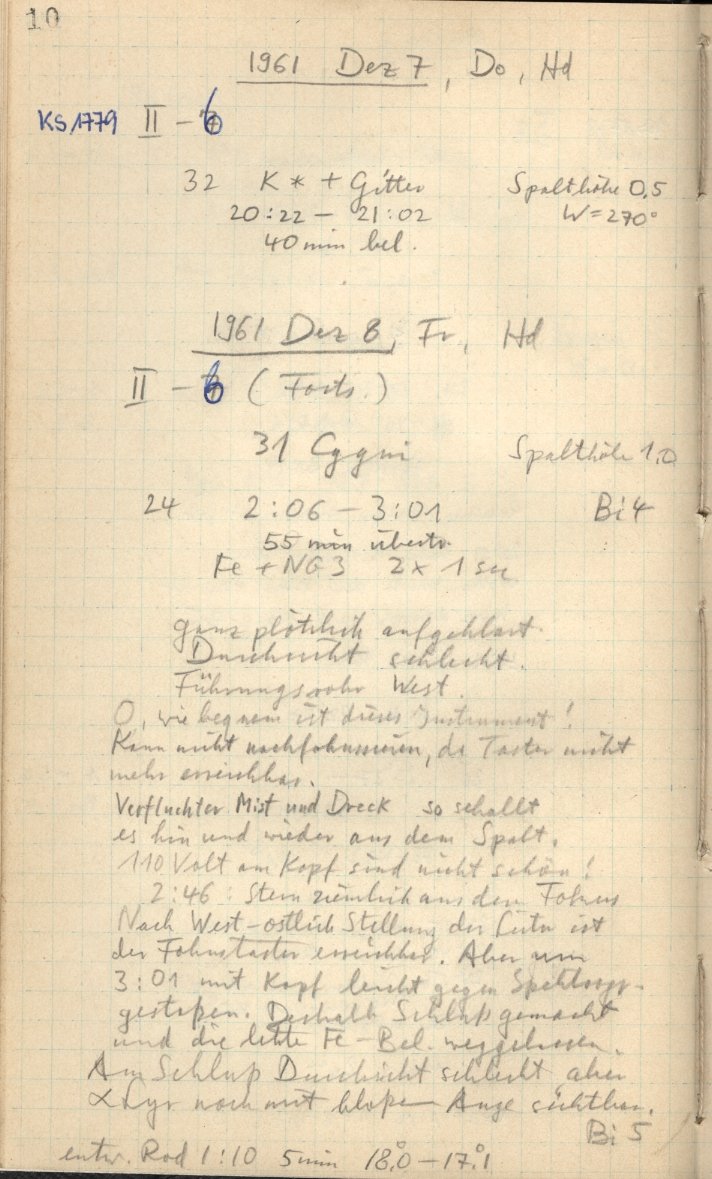 10
1961 Dez 7, Do, Hd
KS 1779 II – 6
32 K * + Gitter Spalthöhe 0,5
20:22 – 21:02 W = 270°
40 min bel.
1961 Dez 8, Fr, Hd
II – 6 (Forts.)
31 Cygni Spalthöhe 1,0
24 2:06 – 3:01 Bi 4
55 min übertr.
Fe + NG 3 2 x 1 sec
ganz plötzlich aufgeklart.
Durchsicht schlecht.
Führungsrohr West.
O, wie bequem ist dieses Instrument!
Kann nicht nachfokussieren, da Taster nicht
mehr erreichbar.
Verfluchter Mist und Dreck so schallt
es hin und wieder aus dem Spalt.
110 Volt am Kopf sind nicht schön!
2:46 : Stern ziemlich aus dem Fokus
Nach West-östlich Stellung der Leiter ist
der Fokustaster erreichbar. Aber um
3:01 mit Kopf leicht gegen
gestoßen. Deshalb Schluß gemacht
und die letzte Fe – Bel. weggelassen.
Am Schluß Durchsicht schlecht, aber
α Lyr noch mit bloßem Auge sichtbar.
Bi 5
entw. Rod 1:10 5 min 18,°0 – 17,°1